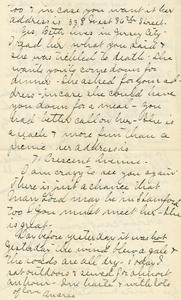 too & in case you want it her
address is 338 East 30th Street.
Yes, Beth lives in Jersey City.
I told her what you said &
she was tickled to death. She
wants you to come down for
dinner. She asked for your ad-
dress - in case she could have
you down for a meal - you
had better call on her - she is
a peach & more fun than a
picnic. her address is
7 Crescent Avenue.
I am crazy to see you again
There is just a chance that
Ford may be in
too & you must meet her - she
is great.
Day before yesterday it was hot
yesterday the wind blew a gale &
the roads are all dry. Today I
sat outdoors & sewed for almost
an hour. One heart & with lots
of love,